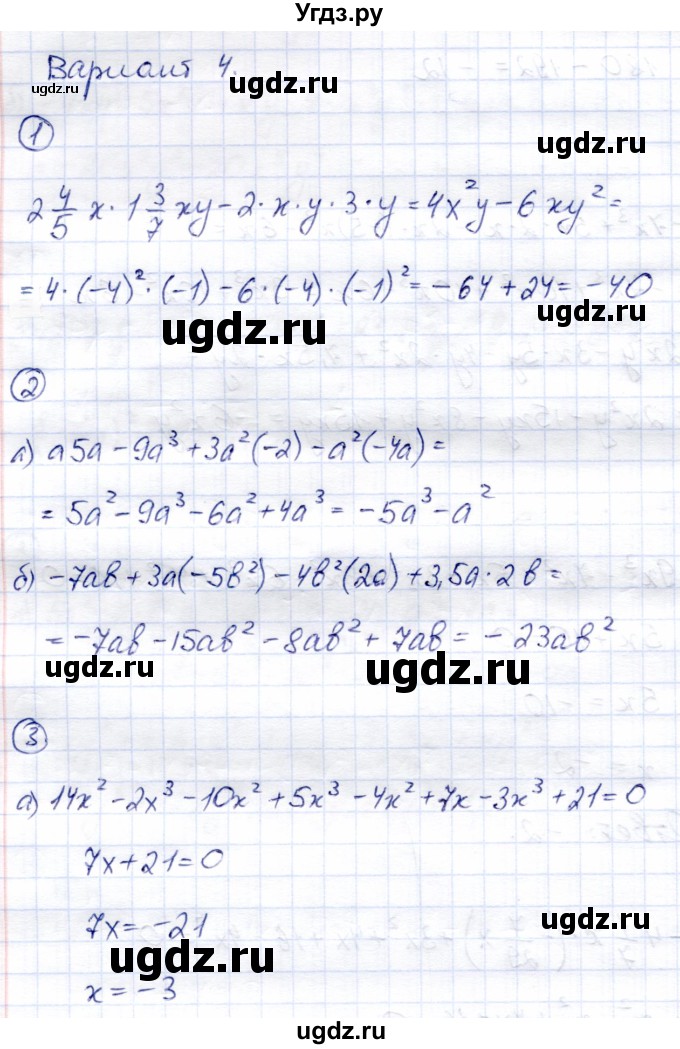 Угдз.ру
Вариант 4.
ugdz.ru
ugdz.ru
ugdz.ru
1
2 4/5 x · 1 3/7 xy - 2 · x · y · 3 · y = 4x²y - 6xy² =
= 4 · (-4)² · (-1) - 6 · (-4) · (-1)² = -64 + 24 = -40
ugdz.ru
ugdz.ru
2
а) a5a - 9a³ + 3a²(-2) - a²(-4a) =
= 5a² - 9a³ - 6a² + 4a³ = -5a³ - a²
б) -7ab + 3a(-5b²) - 4b²(2a) + 3,5a · 2b =
= -7ab - 15ab² - 8ab² + 7ab = -23ab²
ugdz.ru
ugdz.ru
3
а) 14x² - 2x³ - 10x² + 5x³ - 4x² + 7x - 3x³ + 21 = 0
7x + 21 = 0
7x = -21
ugdz.ru
ugdz.ru
x = -3
ugdz.ru